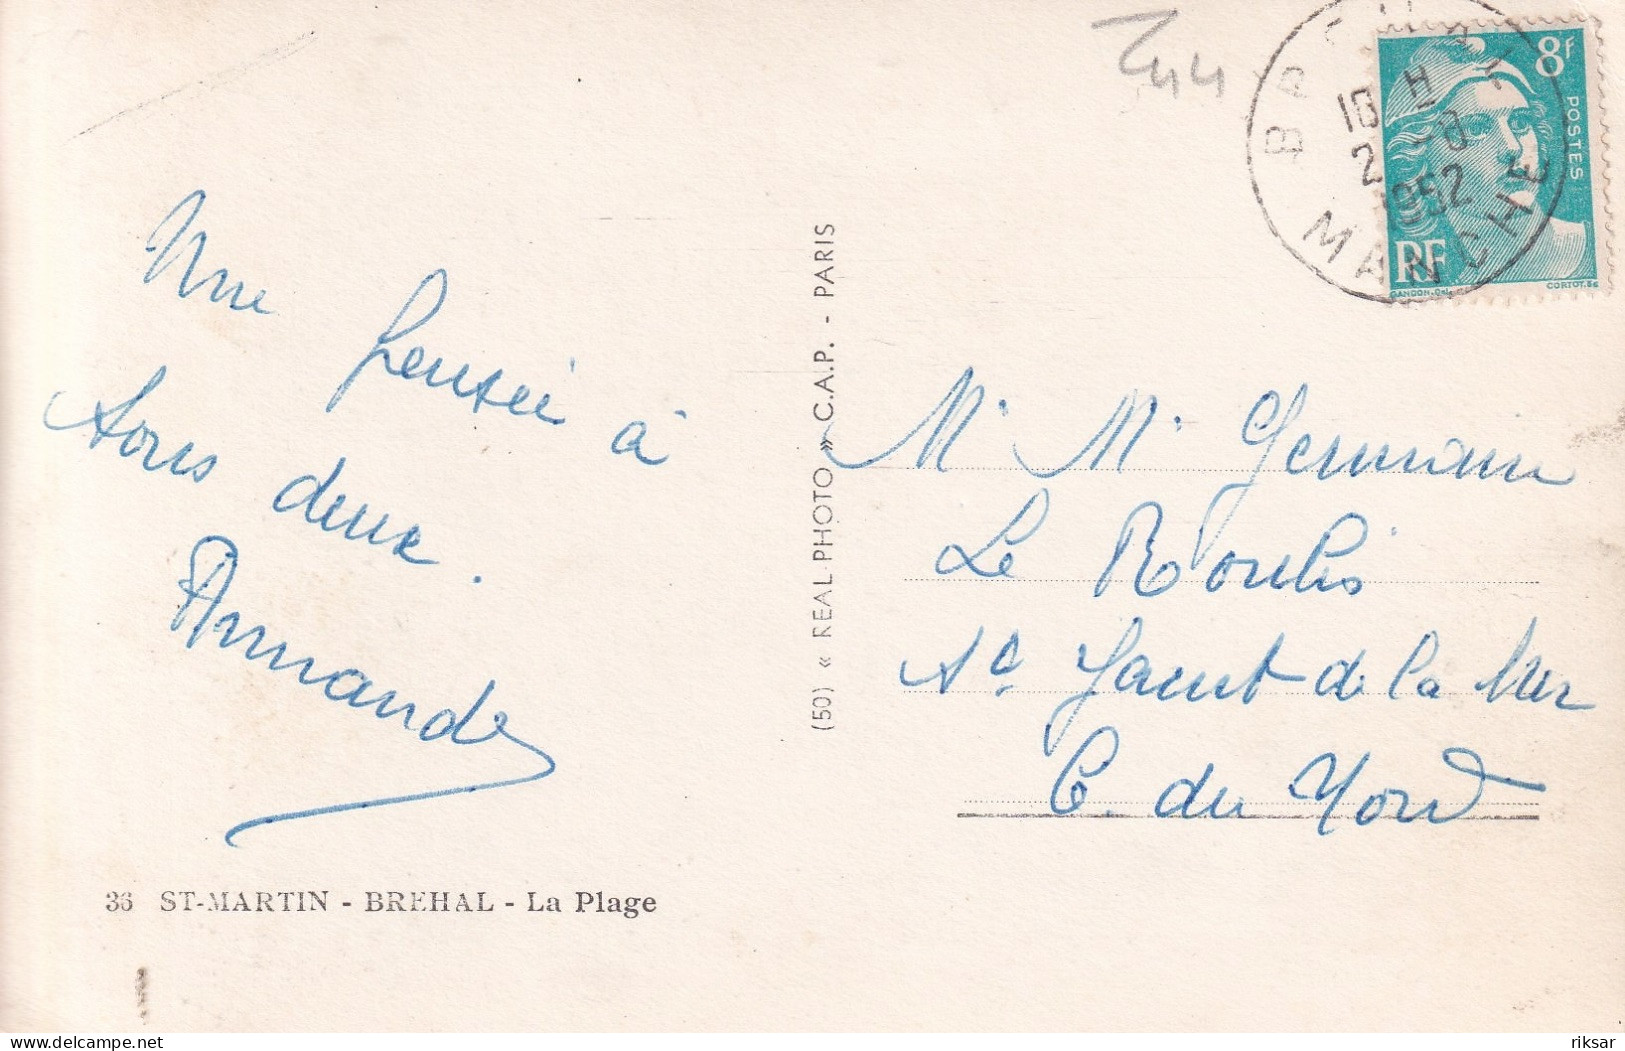 Une pensée à
vous deux.
Armande
36 ST-MARTIN - BREHAL - La Plage
(50) « REAL-PHOTO » C.A.P. - PARIS
8F
POSTES
RF
GANDON.Del.
CORTOT.Sc
10 H
2 -8
1952
MANCHE
M. M. Germain
Le
St Jacut de la Mer
C. du Nord
delcampe.net
riksar